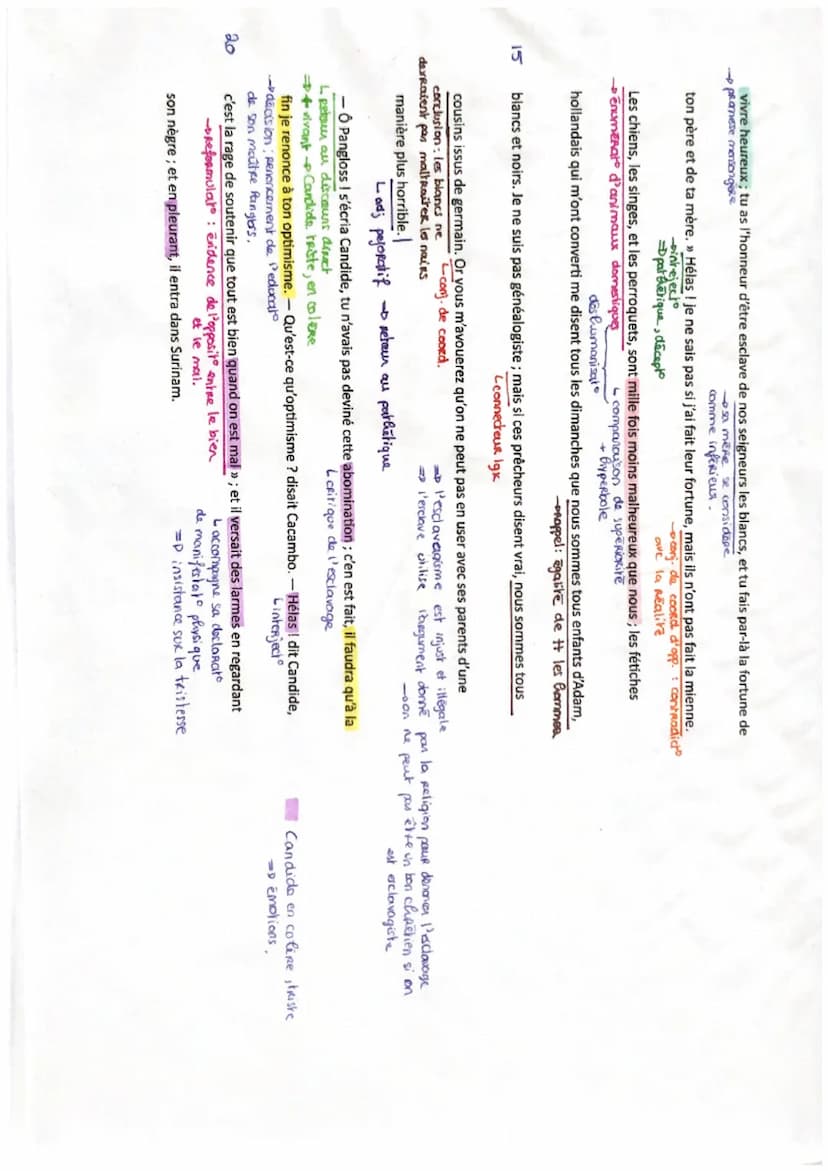 vivre heureux ; tu as l'honneur d'être esclave de nos seigneurs les blancs, et tu fais par-là la fortune de
→ promesse mensongère
→ sa mère se considère
comme inférieur.
ton père et de ta mère. » Hélas ! je ne sais pas si j'ai fait leur fortune, mais ils n'ont pas fait la mienne.
→ interject°
⇒ pathétique, décept°
→ conj. de coord d'opp. : contradict°
avc la réalité
Les chiens, les singes, et les perroquets, sont mille fois moins malheureux que nous ; les fétiches
→ énumérat° d'animaux domestiques
déshumanisat°
↳ comparaison de supériorité
+ hyperbole
hollandais qui m'ont converti me disent tous les dimanches que nous sommes tous enfants d'Adam,
→ rappel : égalité de tt les hommes
15 blancs et noirs. Je ne suis pas généalogiste ; mais si ces prêcheurs disent vrai, nous sommes tous
↳ connecteur lgx
cousins issus de germain. Or vous m'avouerez qu'on ne peut pas en user avec ses parents d'une
conclusion : les blancs ne
devraient pas maltraiter les noirs
↳ conj. de coord.
⇒ l'esclavagisme est injust et illégale
⇒ l'esclave utilise l'argument donné par la religion pour dénoncer l'esclavage
→ on ne peut pas être un bon chrétien si on
est esclavagiste
manière plus horrible. |
↳ adj péjoratif → retour au pathétique
— Ô Pangloss ! s'écria Candide, tu n'avais pas deviné cette abomination ; c'en est fait, il faudra qu'à la
↳ retour au discours direct
⇒ + vivant → Candide triste, en colère
↳ critique de l'esclavage
fin je renonce à ton optimisme. — Qu'est-ce qu'optimisme ? disait Cacambo. — Hélas ! dit Candide,
→ décision : renoncement de l'educat°
de son maître Pangloss.
↳ interject°
Candide en colère, triste
⇒ émotions.
20 c'est la rage de soutenir que tout est bien quand on est mal » ; et il versait des larmes en regardant
→ reformulat° : évidence de l'opposit° entre le bien
et le mal.
↳ accompagne sa déclarat°
de manifestat° physique
⇒ insistance sur la tristesse
son nègre ; et en pleurant, il entra dans Surinam.